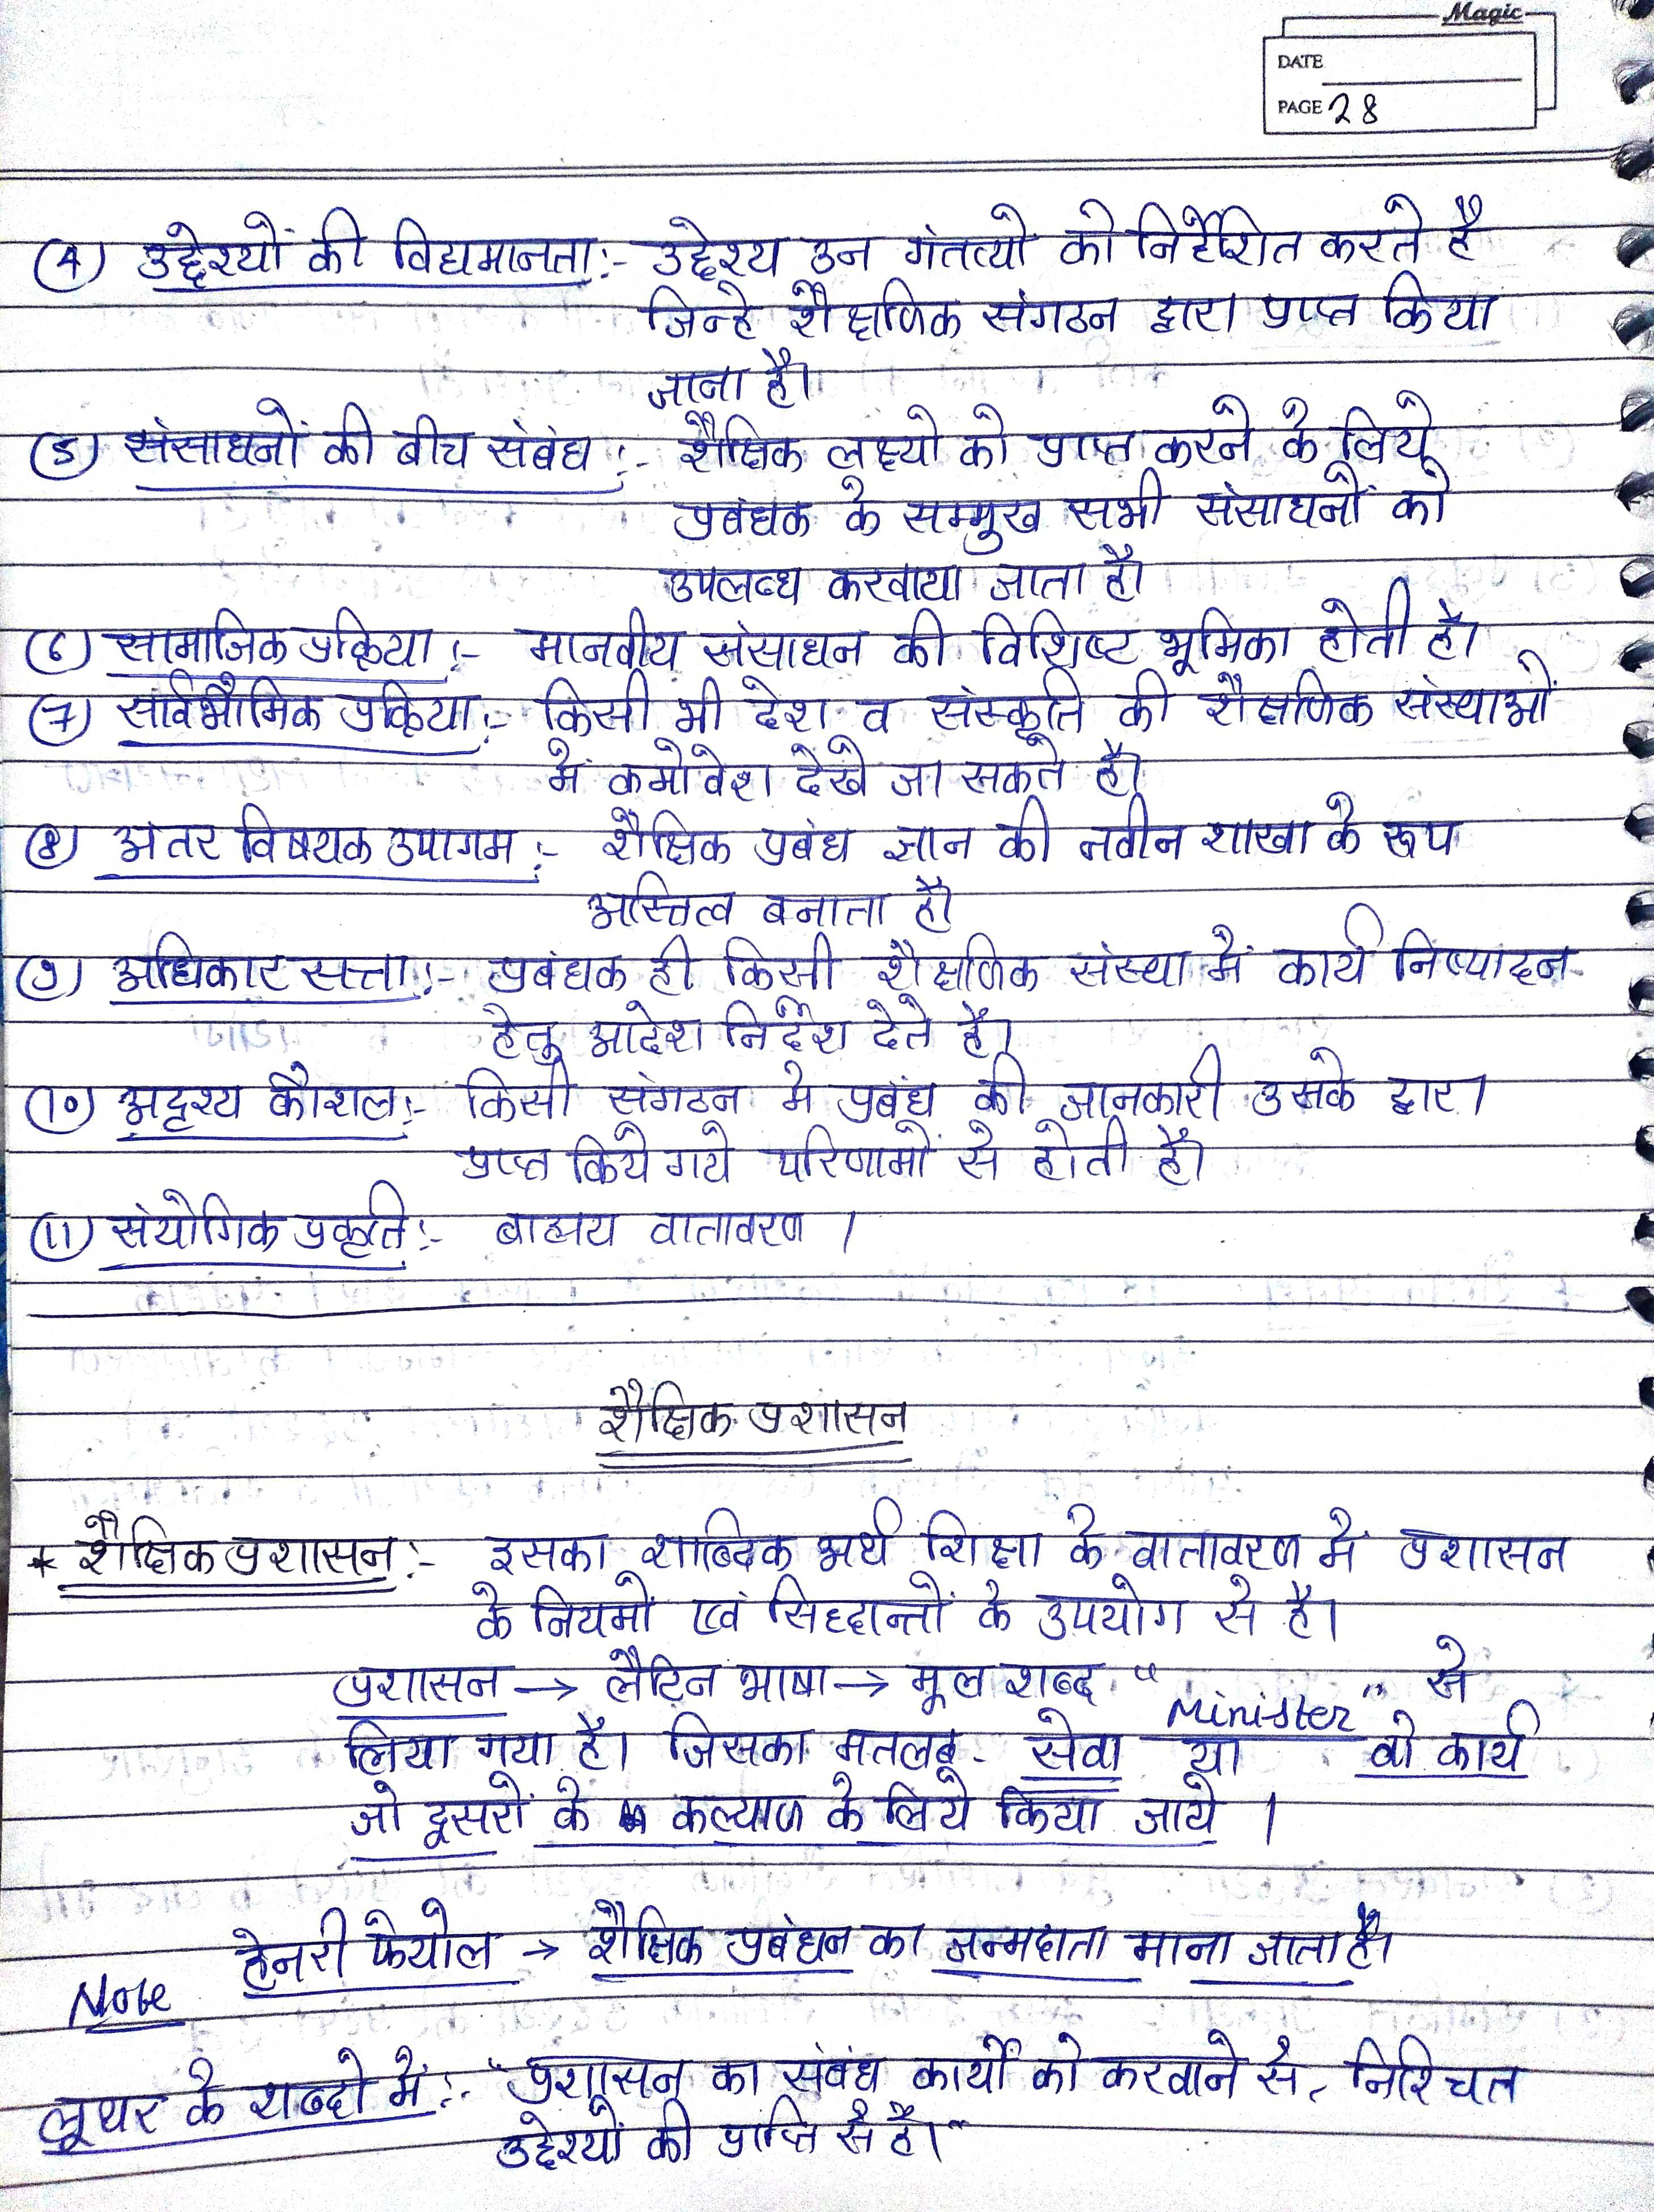 Magic
DATE
PAGE 28
(4) उद्देश्यों की विद्यमानता :- उद्देश्य उन गंतव्यो को निर्देशित करते है
जिन्हे शैक्षणिक संगठन द्वारा प्राप्त किया
जाना है।
(5) संसाधनों की बीच संबंध :- शैक्षिक लक्ष्यो को प्राप्त करने के लिये
प्रबंधक के सम्मुख सभी संसाधनों को
उपलब्ध करवाया जाता है।
(6) सामाजिक प्रक्रिया :- मानवीय संसाधन की विशिष्ट भूमिका होती है।
(7) सार्वभौमिक प्रक्रिया :- किसी भी देश व संस्कृति की शैक्षणिक संस्थाओं
में कमोवेश देखे जा सकते है।
(8) अंतर विषयक उपागम :- शैक्षिक प्रबंध ज्ञान की नवीन शाखा के रूप
अस्तित्व बनाता है।
(9) अधिकार सत्ता :- प्रबंधक ही किसी शैक्षणिक संस्था में कार्य निष्पादन
हेतु आदेश निर्देश देते है।
(10) अदृश्य कौशल :- किसी संगठन मे प्रबंध की जानकारी उसके द्वारा
प्राप्त किये गये परिणामों से होती है।
(11) संयोगिक प्रकृति :- बाह्मय वातावरण ।
शैक्षिक प्रशासन
* शैक्षिक प्रशासन :- इसका शाब्दिक अर्थ शिक्षा के वातावरण में प्रशासन
के नियमों एवं सिद्धान्तों के उपयोग से है।
प्रशासन → लैटिन भाषा → मूल शब्द " Minister " से
लिया गया है। जिसका मतलब - सेवा या वो कार्य
जो दूसरों के कल्याण के लिये किया जाये ।
हेनरी फेयोल → शैक्षिक प्रबंधन का जन्मदाता माना जाता है।
Note
लूथर के शब्दो में :- "प्रशासन का संबंध कार्यों को करवाने से, निश्चित
उद्देश्यों की प्राप्ति से है।"